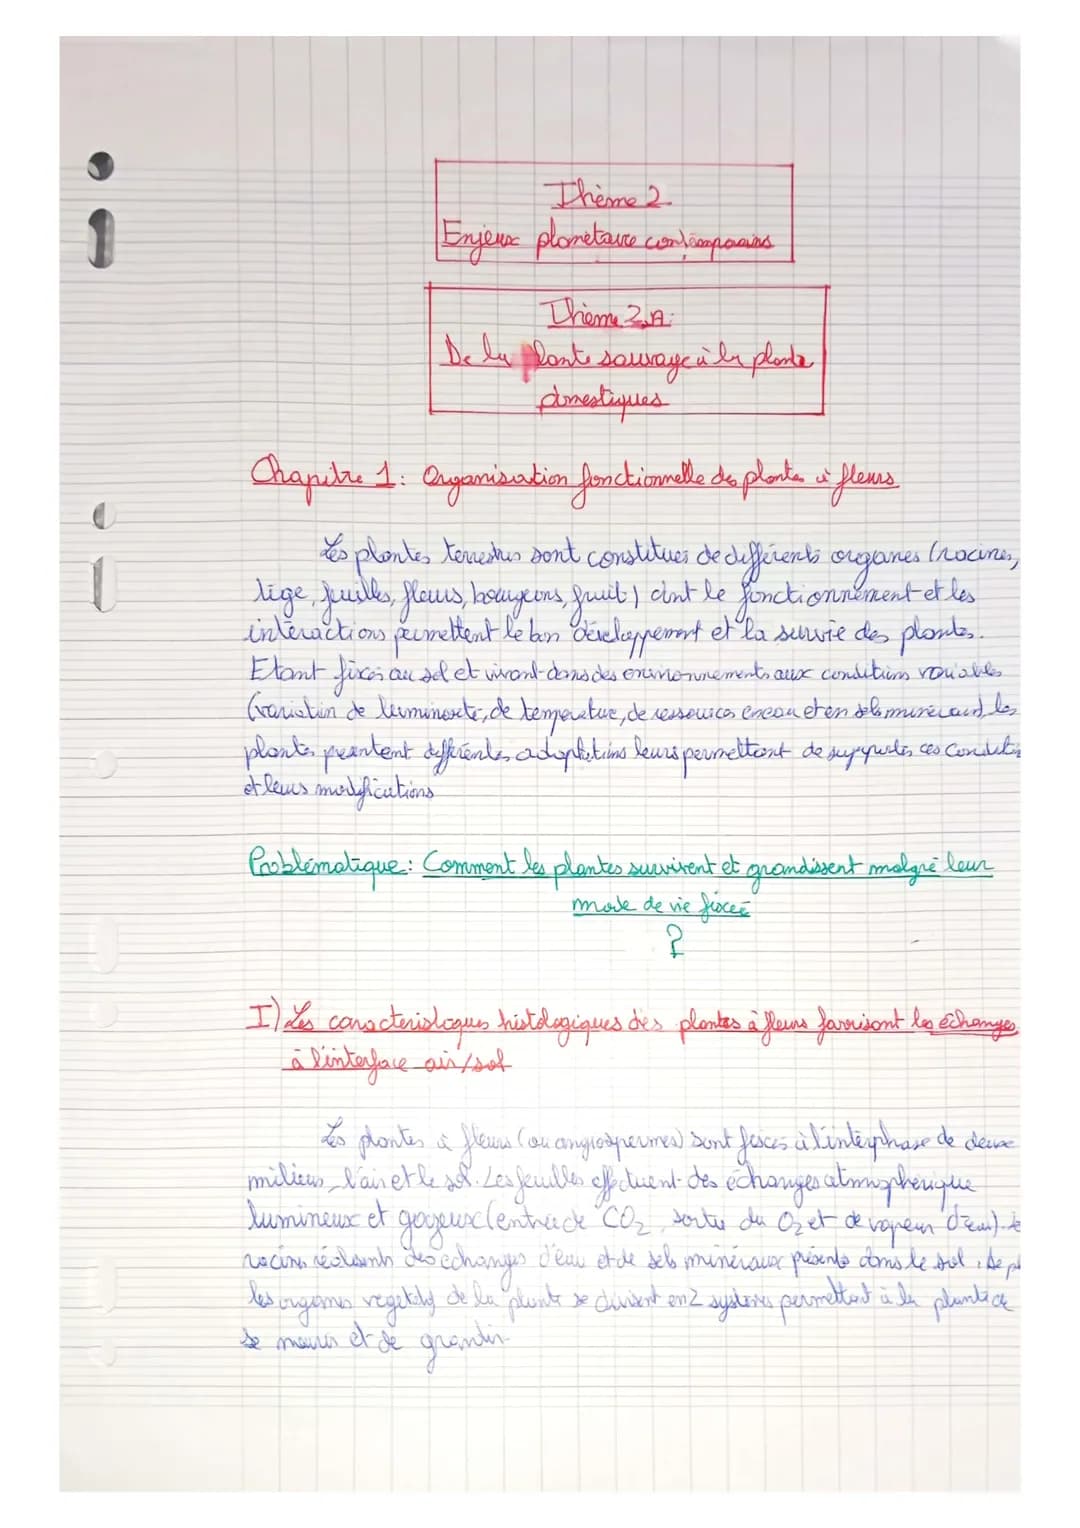 Thème 2
Enjeux planétaire contemporains
Thème 2.A:
De la plante sauvage à la plante
domestiques
Chapitre 1: Organisation fonctionnelle des plantes à fleurs
Les plantes terrestres sont constitues de différents organes (racines,
tige, feuilles, fleurs, bourgeons, fruit) dont le fonctionnement et les
intéractions permettent le bon développement et la survie des plantes.
Etant fixés au sol et vivant dans des environnements aux conditions variables
(variation de luminosité, de température, de ressources en eau et en sels minéraux) les
plantes présentent différentes adaptations leurs permettant de supporter ces conditi
et leurs modifications
Problématique: Comment les plantes survivent et grandissent malgré leur
mode de vie fixée
?
I) Les caractéristiques histologiques des plantes à fleurs favorisent les échanges
à l'interface air/sol
Les plantes à fleurs (ou angiospermes) sont fixées à l'interphase de deux
milieux, l'air et le sol. Les feuilles effectuent des échanges atmosphérique
lumineux et gazeux (entrée de CO2, sortie du O2 et de vapeur d'eau).
racines réalisent des échanges d'eau et de sels minéraux présents dans le sol. De pl
les organes végétatifs de la plante se divisent en 2 systèmes permettant à la plante de
se nourrir et de grandir.